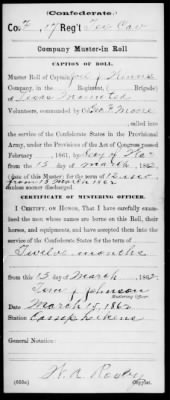 (Confederate.)
Co. 17 Reg't Tex Cav
Company Muster-in Roll
CAPTION OF ROLL.
Muster Roll of Captain
Company, in the Regiment ( Brigade)
of Texas Mounted
Volunteers, commanded by Geo. F. Moore
CALLED INTO
the service of the Confederate States in the Provisional
Army, under the Provisions of the Act of Congress passed
February , 1861, by
from the 15 day of March, 1862
(date of this Muster) for the term of 12 mos
from 15 March 1862
unless sooner discharged.
CERTIFICATE OF MUSTERING OFFICER.
I CERTIFY, ON HONOR, That I have carefully exam-
ined the men whose names are borne on this Roll, their
horses, and equipments, and have accepted them into the
service of the Confederate States for the term of
Twelve months
from this 15 day of March, 1862
Johnson
Mustering Officer.
Date March 15, 1862
Station Camp
General Notation:
Copyist.